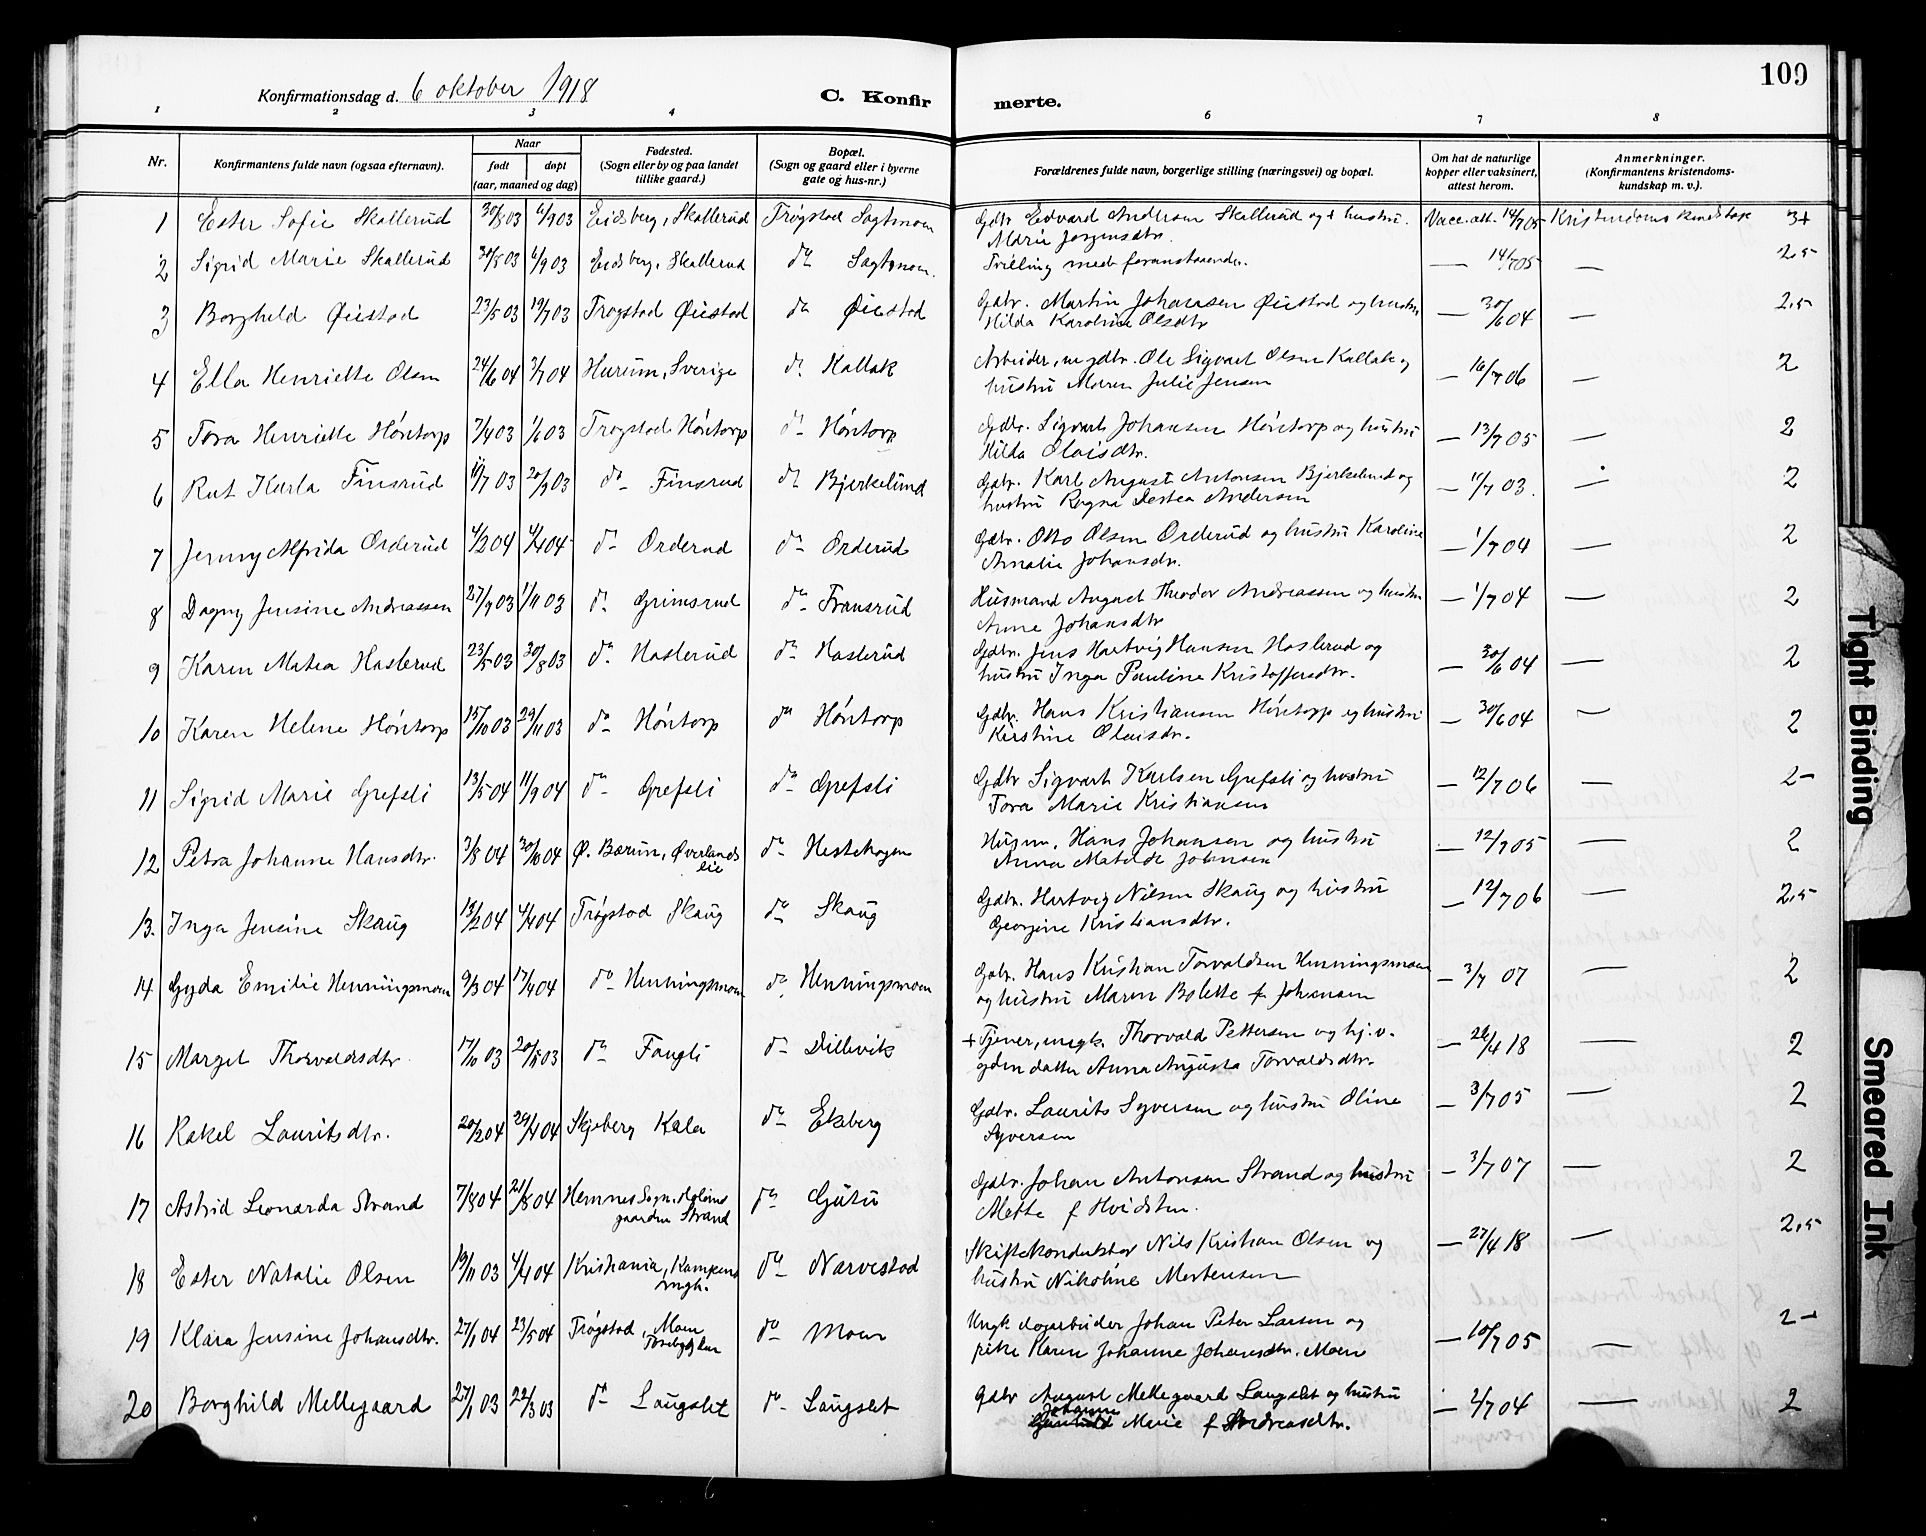 109
Konfirmationsdag d. 6 oktober 1918
C. Konfir merte.
1 2 3 4 6 7 8
Nr. Konfirmantens fulde navn (ogsaa efternavn). Naar født døpt (aar, maaned og dag) Fødested. (Sogn eller by og paa landet tillike gaard.) Bopæl. (Sogn og gaard eller i byerne gate og hus-nr.) Forældrenes fulde navn, borgerlige stilling (næringsvei) og bopæl. Om hat de naturlige kopper eller vaksinert, attest herom. Anmerkninger. (Konfirmantens kristendoms-kundskap m. v.)
1 Ester Sofie Skallerud 30/8 03 6/9 03 Eidsberg, Skallerud Trøgstad Sagtmoen Gdbr Edvard Andersen Skallerud og hustru Vacc. att. 14/7 05 Kristendoms kundskap 3+
Marie Jørgensdtr.
2 Sigrid Marie Skallerud 30/8 03 6/9 03 Eidsberg, Skallerud do Sagtmoen. Tvilling med foranstaaende. — 14/7 05 — 2,5
3 Borghild Øiestad 23/5 03 19/7 03 Trøgstad Øiestad do Øiestad Gdbr. Martin Johansen Øiestad og hustru — 30/6 04 — 2,5
Hilda Karoline Olsdtr
4 Ella Henriette Olsen 24/6 04 3/7 04 Hurum, Sverige do Kallak Arbeider, nu gdbr. Ole Sigvart Olsen Kallak og — 16/7 06 — 2
hustru Maren Julie Jensen
5 Tora Henriette Høntorp 7/4 03 1/6 03 Trøgstad Høntorp do Høntorp Gdbr. Sigvart Johansen Høntorp og hustru — 13/7 05 — 2
Hilda Olaisdtr.
6 Rut Karla Finsrud 11/7 03 20/9 03 do Finsrud do Bjerkelund Gdbr. Karl August Antonsen Bjerkelund og — 11/7 03. — 2
hustru Ragna Andersen
7 Jenny Alfrida Orderud 4/2 04 4/4 04 do Orderud do Orderud Gdbr. Otto Olsen Orderud og hustru Karoline — 1/7 04 — 2
Amalie Johansdtr.
8 Dagny Jensine Andreassen 27/9 03 1/11 03 do Grimsrud do Fransrud Husmand August Theodor Andreassen og hustru — 1/7 04 — 2
Anne Johansdtr
9 Karen Matea Haslerud 23/5 03 30/8 03 do Haslerud do Haslerud Gdbr. Jens Hartvig Hansen Haslerud og — 30/6 04 — 2
hustru Inga Pauline Kristoffersdtr.
10 Karen Helene Høntorp 15/10 03 29/11 03 do Høntorp do Høntorp Gdbr. Hans Kristiansen Høntorp og hustru — 30/6 04 — 2
Kirstine Olaisdtr.
11 Sigrid Marie Grefsli 13/5 04 11/9 04 do Grefsli do Grefsli Gdbr Sigvart Karlsen Grefsli og hustru — 12/7 06 — 2-
Tora Marie Kristiansen
12 Petra Johanne Hansdtr. 3/8 04 30/10 04 Ø. Bærum, Øverlands eie do Hestehagen Husm. Hans Johansen og hustru — 12/7 05 — 2
Anna Matilde Johnsen
13. Inga Jensine Skaug 13/2 04 4/4 04 Trøgstad Skaug do Skaug Gdbr. Hartvig Nilsen Skaug og hustru — 12/7 06 — 2,5
Georgine Kristiansdtr.
14 Gyda Emilie Henningsmoen 9/3 04 17/4 04 do Henningsmoen do Henningsmoen Gdbr. Hans Kristian Torvaldsen Henningsmoen — 3/7 07 — 2
og hustru Maren Bolette f Johansen
15 Marget Thorvaldsdtr. 17/10 03 20/5 03 do Fangli do Dillevik + Tjener, ungk. Thorvald Pettersen og hj.v. — 26/4 18 — 2
datter Anna Augusta Torvaldsdtr.
16 Rakel Lauritsdtr. 20/2 04 29/4 04 Skjeberg Kala do Ekeberg Gdbr. Laurits Syversen og hustru Oline — 3/7 05 — 2
Syversen
17 Astrid Leonarda Strand 7/8 04 21/8 04 Hemnes Sogn, gaarden Strand do Gutu Gdbr. Johan Antonsen Strand og hustru — 3/7 07 — 2
Mette f Hvidsten.
18 Ester Natalie Olsen 19/11 03 4/4 04 Kristiania, Kampens mgh. do Narvestad Skiftekonduktør Nils Kristian Olsen og — 27/4 18 — 2,5
hustru Nikoline Mortensen
19 Klara Jensine Johansdtr. 27/1 04 23/5 04 Trøgstad, Moen do Moen Ungk. dagarbeider Johan Peter Larsen og — 10/7 05 — 2-
pike Karen Johanne Johansdtr. Moen
20 Borghild Mellegaard 27/1 03 22/3 03 do Laugslet do Laugslet Gdbr August Mellegaard Laugslet og hustru — 2/7 04 — 2
Johanne Marie f Andreasdtr.
Tight Binding
Smeared Ink